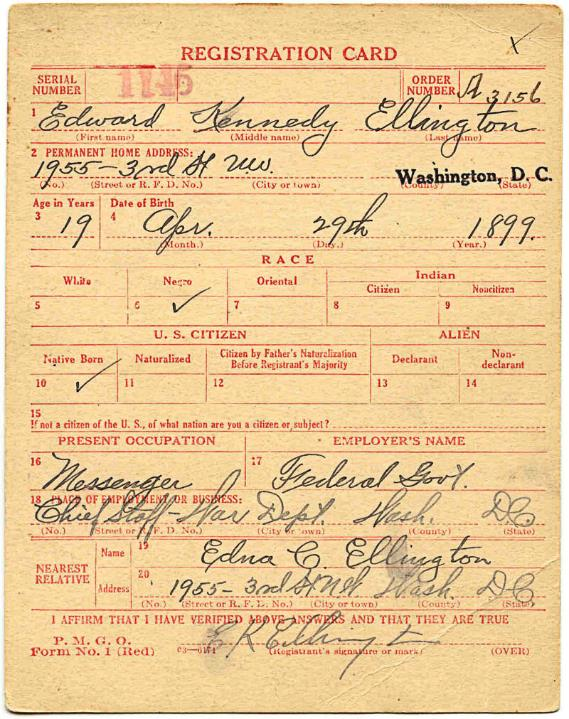 X
REGISTRATION CARD
SERIAL NUMBER 1145 ORDER NUMBER A 3156
1 Edward Kennedy Ellington
(First name) (Middle name) (Last name)
2 PERMANENT HOME ADDRESS:
1955 - 3rd St N.W. Washington, D. C.
(No.) (Street or R. F. D. No.) (City or town) (County) (State)
Age in Years Date of Birth
3 19 4 Apr. 29th 1899.
(Month.) (Day.) (Year.)
RACE
White Negro Oriental Indian
Citizen Noncitizen
5 6 ✓ 7 8 9
U. S. CITIZEN ALIEN
Native Born Naturalized Citizen by Father's Naturalization Before Registrant's Majority Declarant Non-declarant
10 ✓ 11 12 13 14
15
If not a citizen of the U. S., of what nation are you a citizen or subject?
PRESENT OCCUPATION EMPLOYER'S NAME
16 Messenger 17 Federal Govt.
18 PLACE OF EMPLOYMENT OR BUSINESS:
Chief Staff - War Dept. Wash. DC
(No.) (Street or R. F. D. No.) (City or town) (County) (State)
NEAREST RELATIVE
Name 19 Edna C. Ellington
Address 20 1955 - 3rd St NW Wash. DC
(No.) (Street or R. F. D. No.) (City or town) (County) (State)
I AFFIRM THAT I HAVE VERIFIED ABOVE ANSWERS AND THAT THEY ARE TRUE
P. M. G. O.
Form No. 1 (Red) E K Ellington
(Registrant's signature or mark) (OVER)